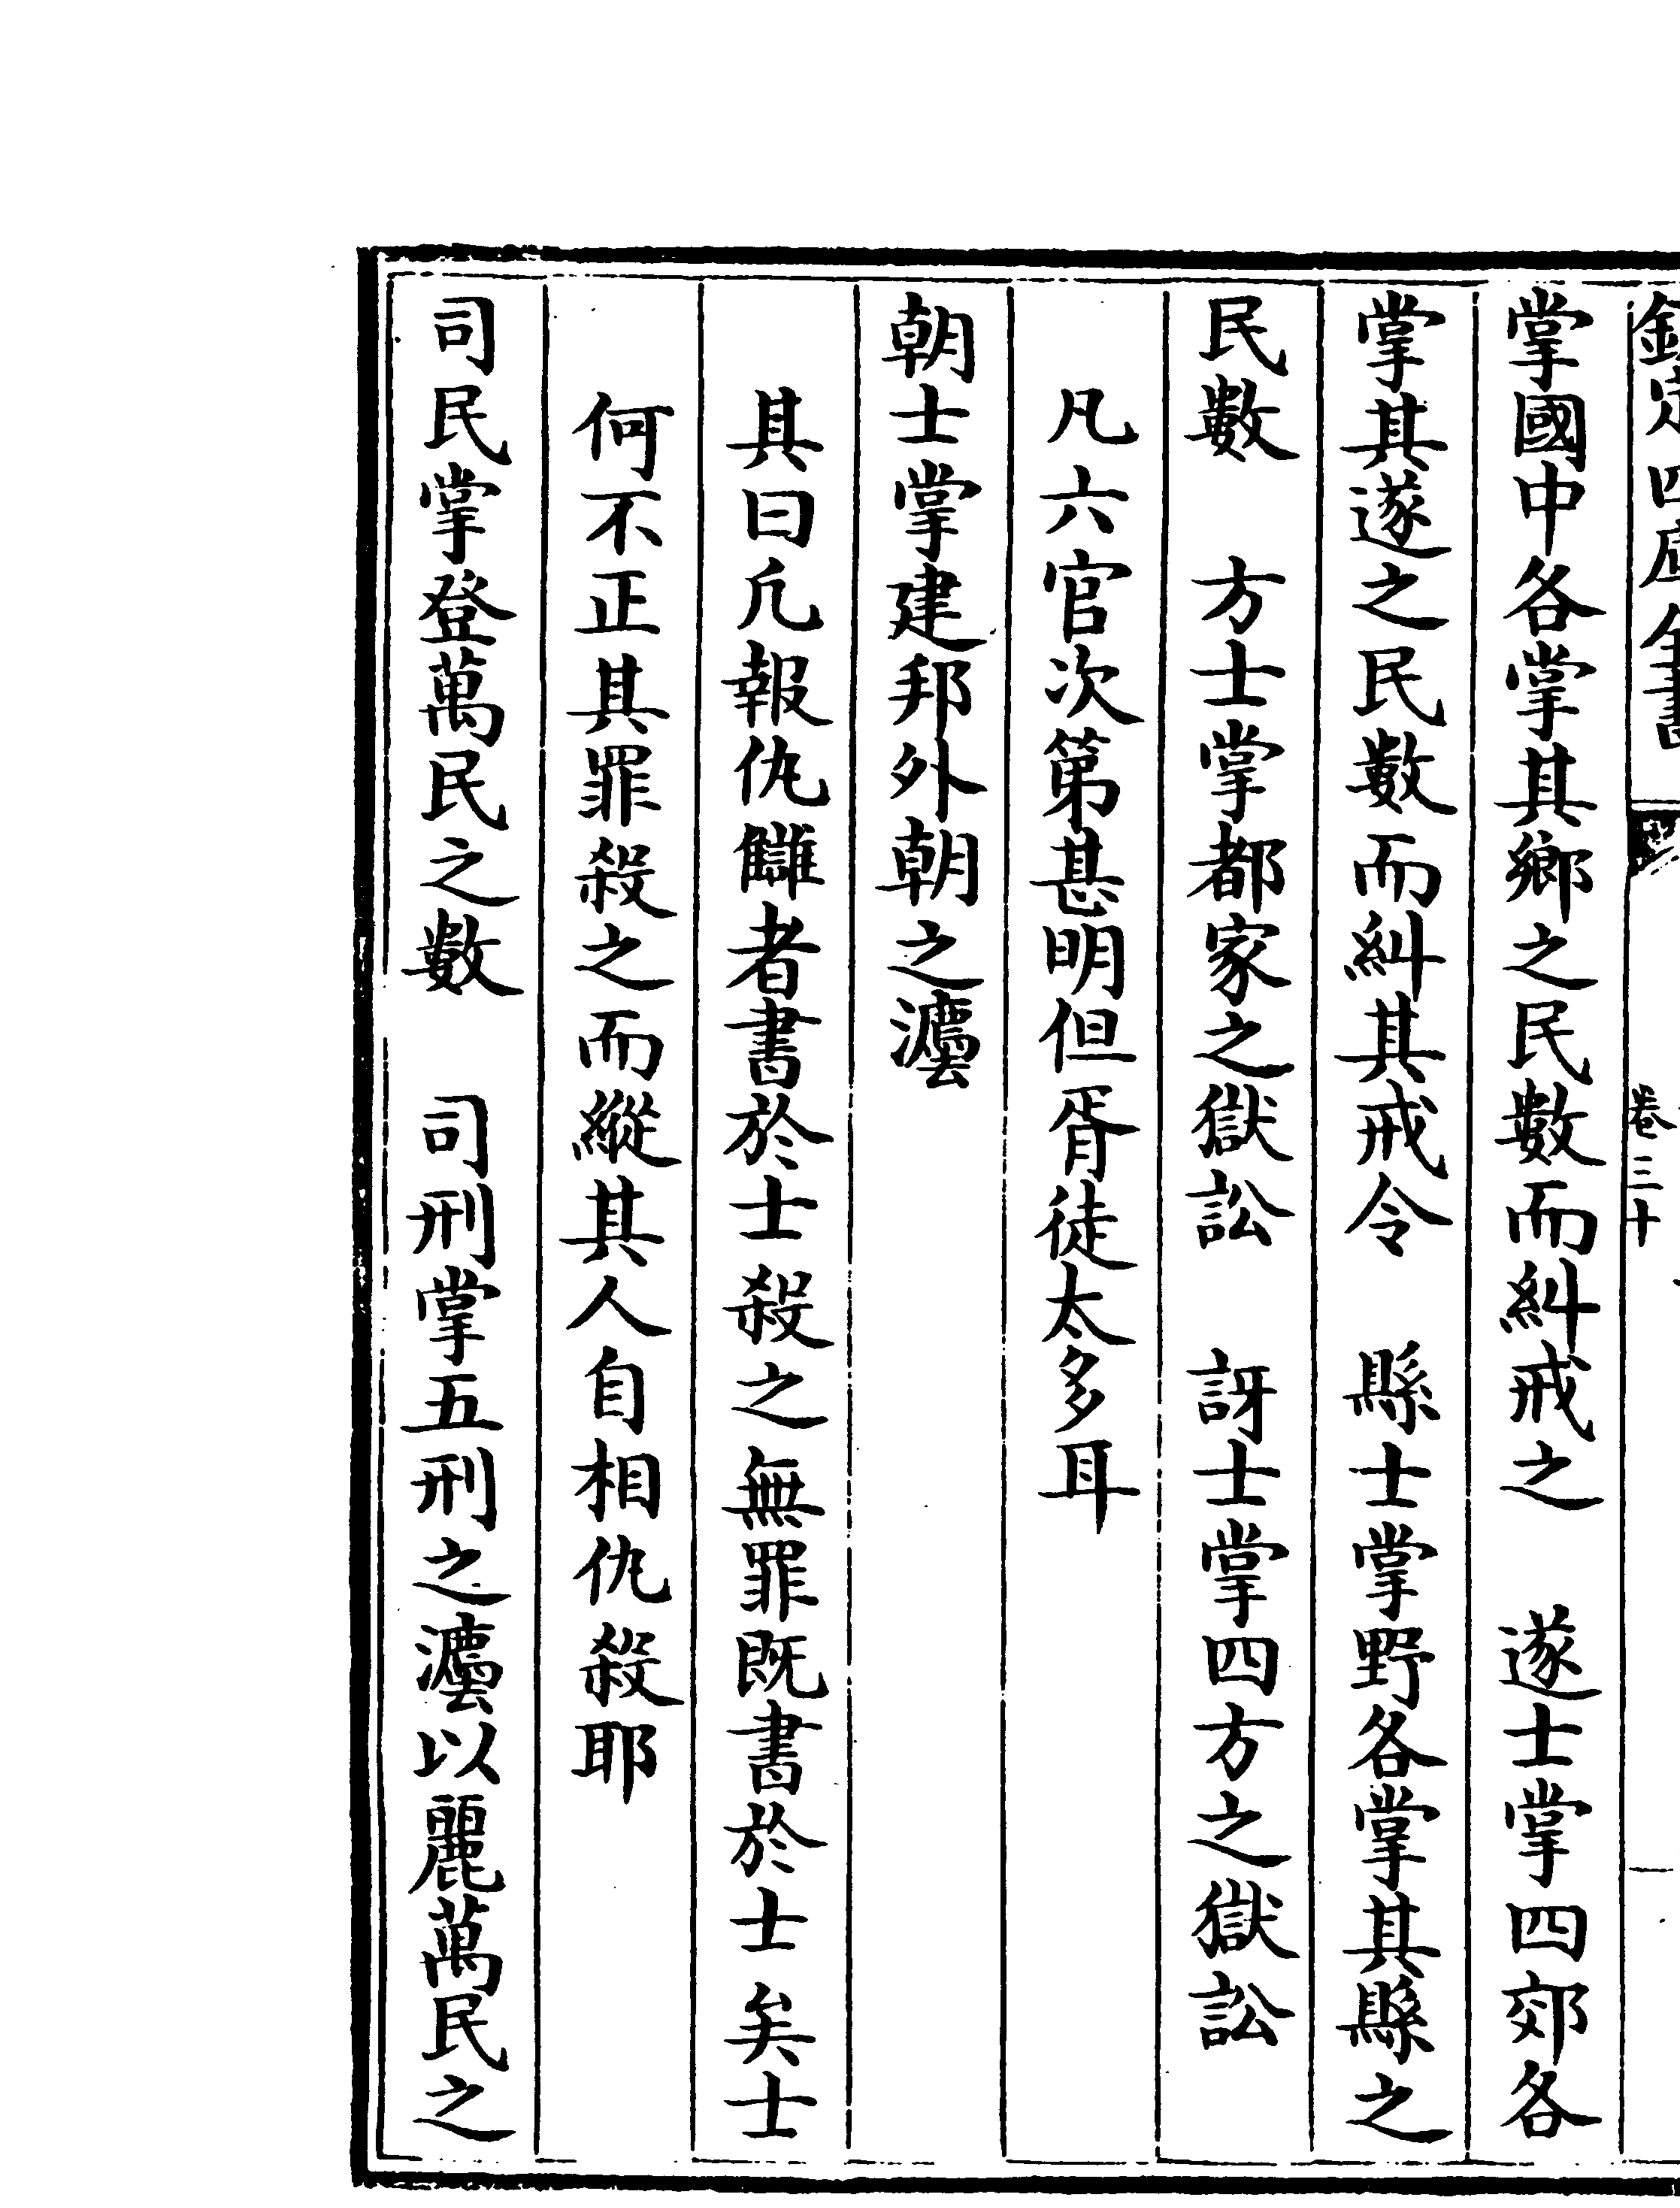 欽定四庫全書
卷三十
掌國中各掌其鄉之民數而糾戒之　遂士掌四郊各
掌其遂之民數而糾其戒令　縣士掌野各掌其縣之
民數　方士掌都家之獄訟　訝士掌四方之獄訟
凡六官次第甚明但胥徒太多耳
朝士掌建邦外朝之灋
其曰凡報仇讎者書於士殺之無罪既書於士矣士
何不正其罪殺之而縱其人自相仇殺耶
司民掌登萬民之數　司刑掌五刑之灋以麗萬民之